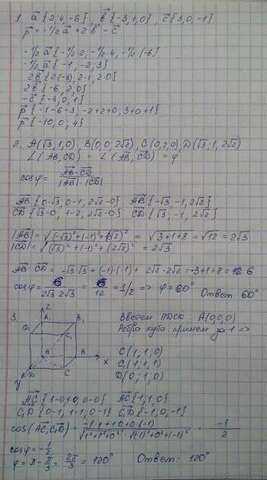 1. a⃗ {2,4,-6}, b⃗ {-3,1,0}, c⃗ {3,0,-1}
p⃗ = -1/2 a⃗ + 2b⃗ - c⃗
-1/2 a⃗ {-1/2·2, -1/2·4, -1/2·(-6)}
-1/2 a⃗ {-1,-2,3}
2b⃗ {2·(-3), 2·1, 2·0}
2b⃗ {-6,2,0}
-c⃗ {-3,0,1}
p⃗ {-1-6-3, -2+2+0, 3+0+1}
p⃗ {-10,0,4}
2. A(√3,1,0), B(0,0,2√2), C(0,2,0), D(√3,1,2√2)
∠(AB,CD) = ∠(AB⃗,CD⃗) = φ
cosφ = AB⃗·CD⃗ / |AB⃗|·|CD⃗|
AB⃗ {0-√3, 0-1, 2√2-0} AB⃗ {-√3,-1,2√2}
CD⃗ {√3-0, 1-2, 2√2-0} CD⃗ {√3,-1,2√2}
|AB⃗| = √((-√3)²+(-1)²+(2√2)²) = √3+1+8 = √12 = 2√3
|CD⃗| = √((√3)²+(-1)²+(2√2)²) = 2√3
AB⃗·CD⃗ = -√3·√3 + (-1)·(-1) + 2√2·2√2 = -3+1+8 = 6
cosφ = 6 / 2√3·2√3 = 6/12 = 1/2 => φ = 60° Ответ 60°
3. Введем ПДСК A(0,0,0)
Ребро куба примем за 1 =>
C(1,1,0)
C₁(1,1,1)
D(0,1,0)
AC⃗ {1-0,1-0,0-0} AC⃗ {1,1,0}
C₁D⃗ {0-1, 1-1, 0-1} C₁D⃗ {-1,0,-1}
cos(AC⃗,C₁D⃗) = -1·1+1·0+0·(-1) / √1²+1²+0² · √(-1)²+0²+(-1)² = -1/2
cosφ = -1/2
φ = π - π/3 = 2π/3 = 120° Ответ: 120°